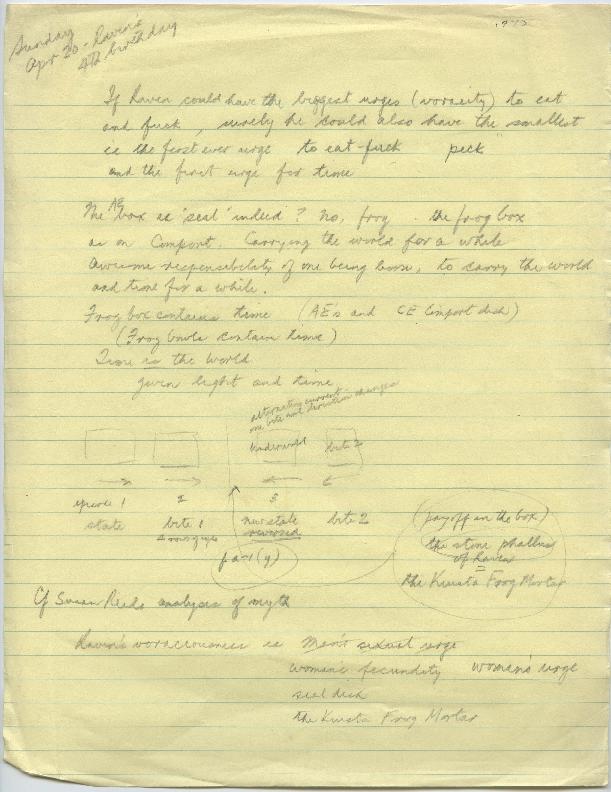 1975
Sunday
Apr 20 - Raven's
4th birthday
If Raven could have the biggest urges (voracity) to eat
and fuck, surely he could also have the smallest
ie the first ever urge to eat-fuck peck
and the first urge for time
The AE box is 'seal' indeed? No, frog. the frog box
is on Comport. Carrying the world for a while
awesome responsibility of one being born, to carry the world
and time for a while.
Frog box contains time (AE's and CE Comport dish)
(Frog bowls contain time)
Time is the world
given light and time
alternating current
one bite and direction changes
Underworld
bite 2
episode 1 2 3
state bite 1 new state bite 2
reversed
fa-1(y)
(payoff in the box)
the stone phallus
of Raven
=
the Kwsta Frog Mortar
Cf Susan Reids analysis of myth
Raven's voraciousness is Men's sexual urge
woman's fecundity woman's urge
seal dish
the Kwsta Frog Mortar